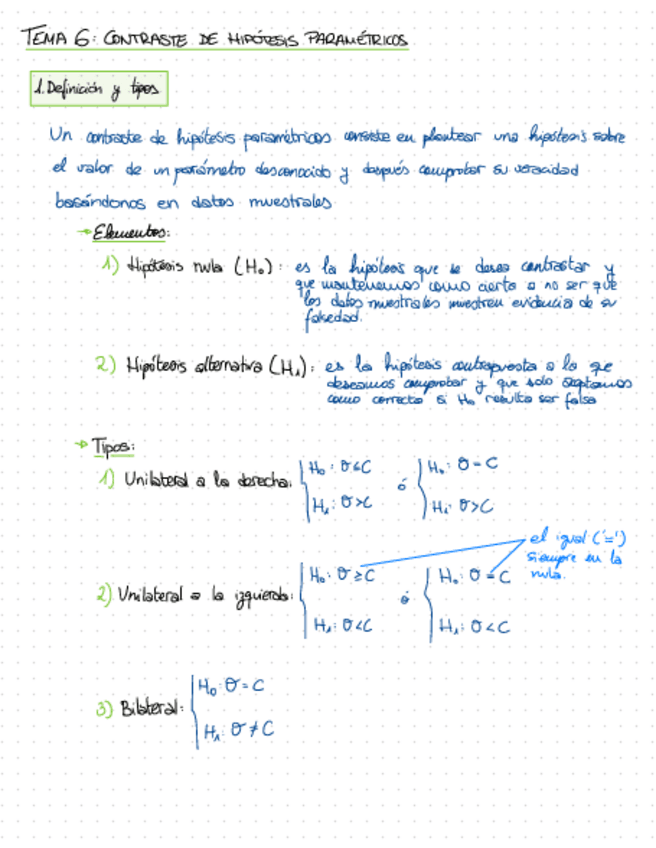 TEMA 6: CONTRASTE DE HIPÓTESIS PARAMÉTRICOS
1. Definición y tipos
Un contraste de hipótesis paramétricos consiste en plantear una hipótesis sobre
el valor de un parámetro desconocido y después comprobar su veracidad
basándonos en datos muestrales
→ Elementos:
1) Hipótesis nula (H₀): es la hipótesis que se desea contrastar y
que mantenemos como cierta a no ser que
los datos muestrales muestren evidencia de su
falsedad.
2) Hipótesis alternativa (H₁): es la hipótesis contrapuesta a la que
deseamos comprobar y que solo aceptamos
como correcta si H₀ resulta ser falsa
→ Tipos:
1) Unilateral a la derecha: H₀: θ≤C ó H₀: θ=C
H₁: θ>C H₁: θ>C
el igual ('=')
siempre en la
nula.
2) Unilateral a la izquierda: H₀: θ≥C ó H₀: θ=C
H₁: θ<C H₁: θ<C
3) Bilateral: H₀: θ=C
H₁: θ≠C